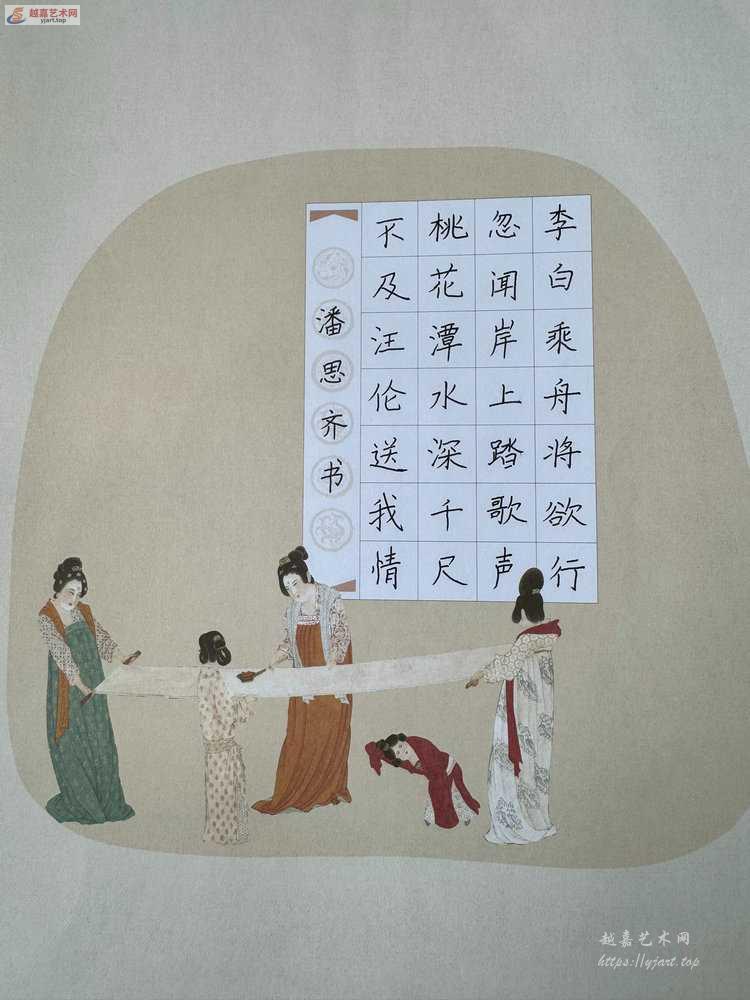 越嘉艺术网
yjart.top
李白乘舟将欲行
忽闻岸上踏歌声
桃花潭水深千尺
不及汪伦送我情
潘思齐书
越嘉艺术网
https://yjart.top